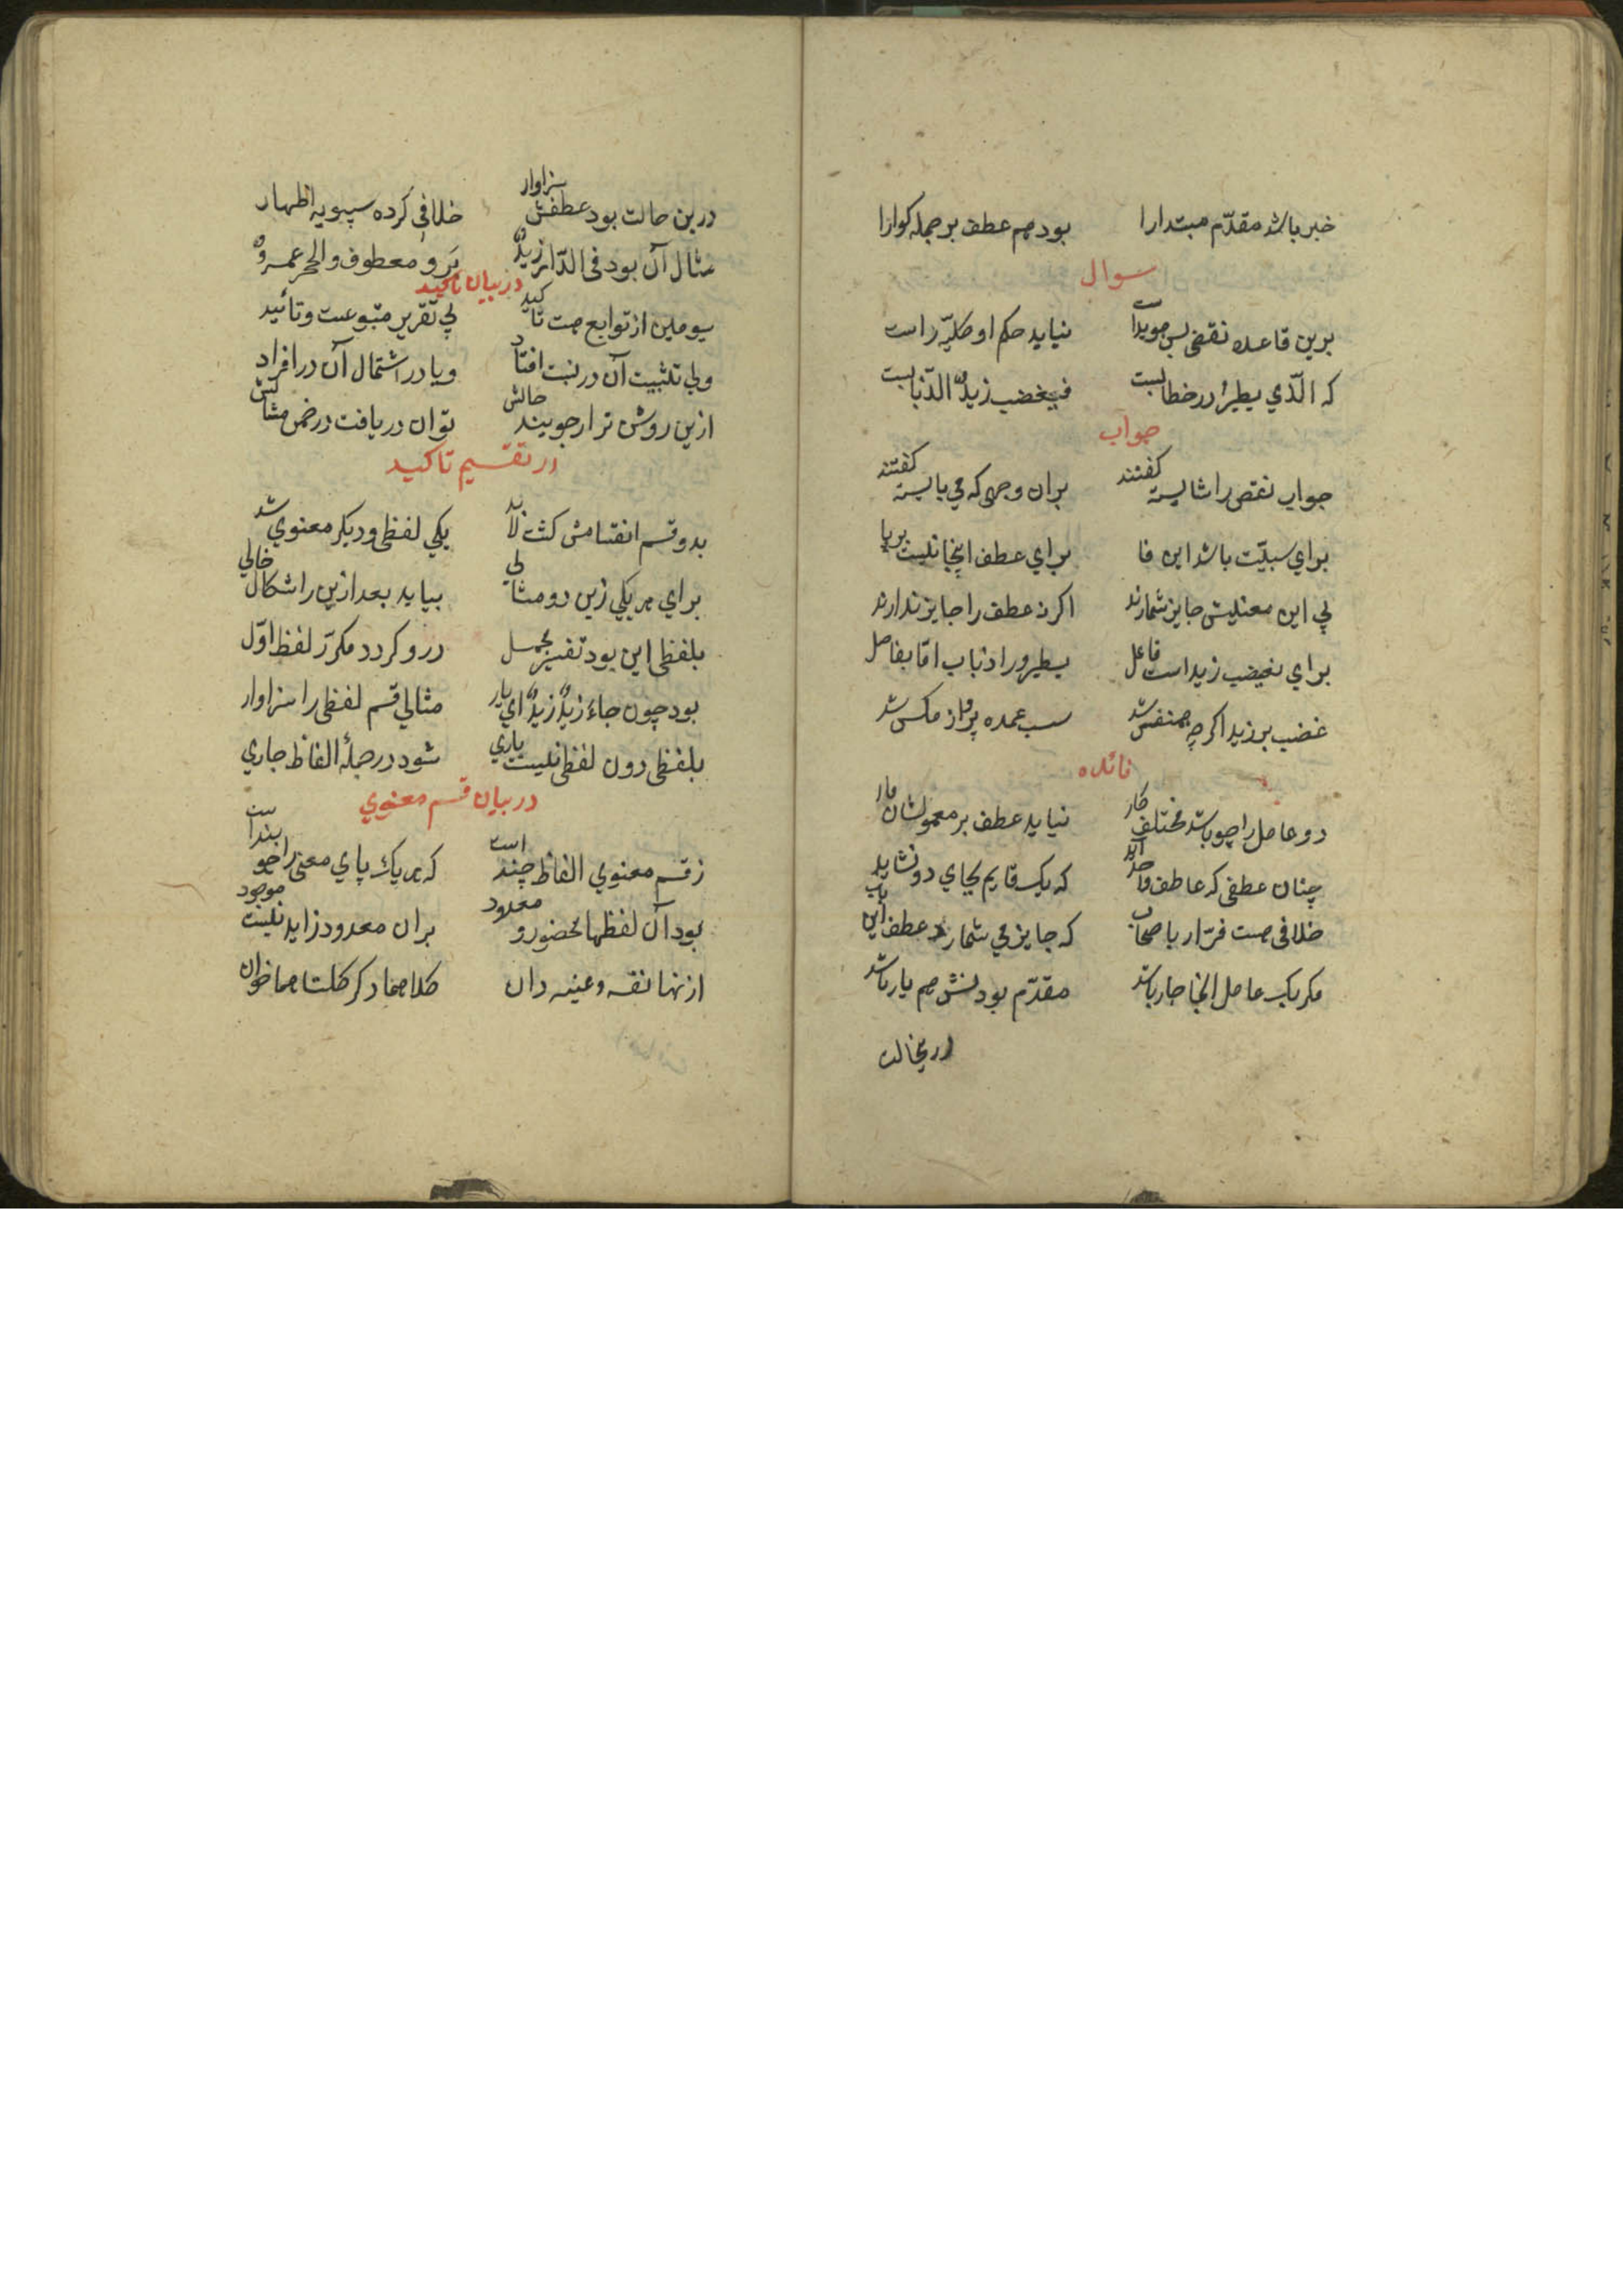 خبر باشد مقدّم مبتدارا بود هم عطف بر جمله کوارا
سوال
برین قاعده نقضی بس هویداست نیاید حکم او کلیّه راست
که الّذی یطیر در خطابست فیغضب زیدٌ الذّبابست
جواب
جواب نقض را شایسته کفتند بران وجهی که می بایسته کفتند
برای سببیّت باشد این فا برای عطف اینجا نیست بر پا
پی این معنیش جایز شمارند اکر نه عطف را جایز ندارند
برای یغضب زید است فاعل یطیر و را ذباب امّا بفاصل
غضب بر زید اکرچه همنفس شد سبب عمده پرواز مکس شد
فائده
دو عامل را چو باشد مختلف کار نیاید عطف بر معمولشان
چنان عطفی که عاطف واحد آید که یک قایم بجای دو نشاید
خلافی هست فرّا را با صحاب که جایز می شمارند عطف این باب
مکر یک عامل انجا جار باشد مقدّم بودنش هم یار باشد
درینحالت
درین حالت بود عطفش سزاوار خلافی کرده سیبویه اظهار
مثال آن بود فی الدّار زیدٌ بَرو معطوف والحجر عمروٌ
در بیان تاکید
سومین از توابع هست تاکید پی تقریر متبوعست و تائید
ولی تثبیت آن در نسبت افتاد ویا در اشتمال آن در افراد
ازین روشن ترار جویند حالش توان دریافت در ضمن مثالش
در تقسیم تاکید
بدو قسم انقسامش کشت لابد یکی لفظی و دیکر معنوی شد
برای هر یکی زین دو مثالی بیاید بعد ازین راشکال خالی
بلفظی این بود تفسیر مجمل درو کردد مکرّر لفظ اوّل
بود چون جاءَ زیدٌ زیدٌ ای یار مثالی قسم لفظی را سزاوار
بلفظی دون لفظی نیست یاری شود در جملهٔ الفاظ جاری
در بیان قسم معنوی
ز قسم معنوی الفاظ چند است که هر یک پای معنی را چو بند است
بود آن لفظها محضور و معدود بران معدود زاید نیست موجود
از نها نفسه و عینه دان کلاهما دکر کلتاهما خوان